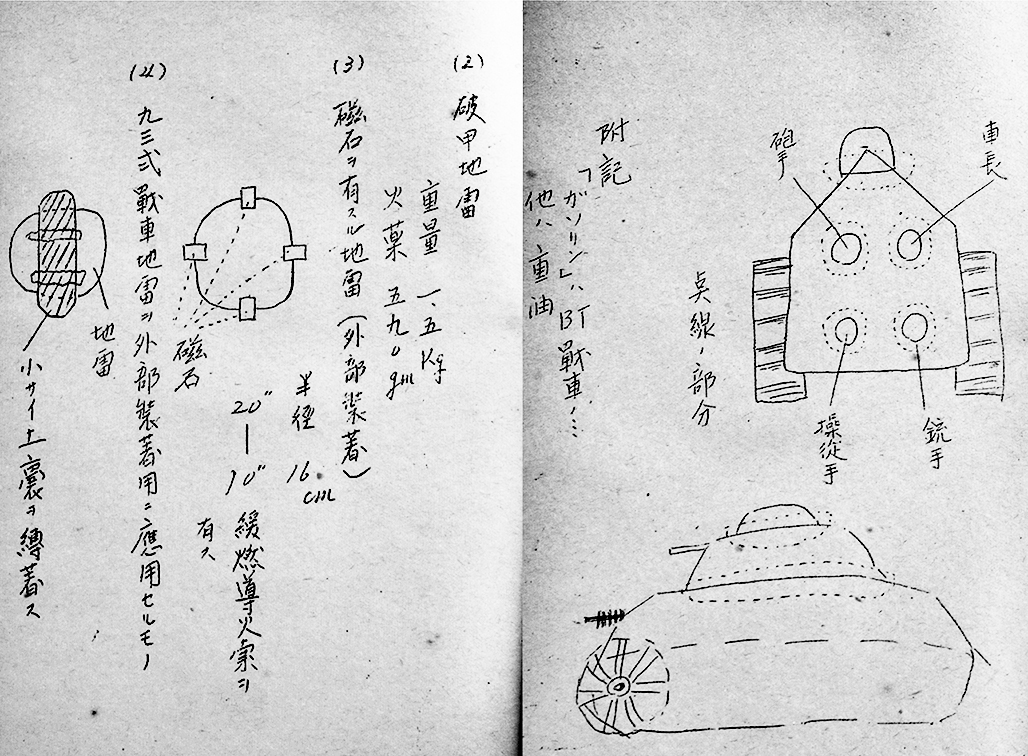 車長
砲手
銃手
操從手
点線ノ部分
附記
「ガソリン」ハBT戰車ノミ
他ハ重油
(2) 破甲地雷
重量 一、五Kg
火薬 五九〇gm
(3) 磁石ヲ有スル地雷(外部装着)
半径 16cm
20"—10" 緩燃導火索ヲ
有ス
磁石
(4) 九三式戰車地雷ヲ外部装着用ニ應用セルモノ
地雷
小サイ土嚢ヲ縛着ス